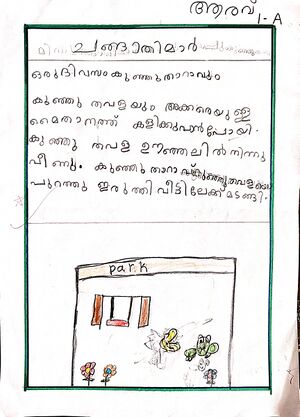 ആരവ്
1-A
ചങ്ങാതിമാർ
ഒരുദിവസം കുഞ്ഞുതാറാവും
കുഞ്ഞു തവളയും അക്കരെയുള്ള
മൈതാനത്ത് കളിക്കുവാൻപോയി.
കുഞ്ഞു തവള ഊഞ്ഞലിൽ നിന്നു
വീണു. കുഞ്ഞുതാറാവ് കുഞ്ഞുതവളയെ
പുറത്തു ഇരുത്തി വീട്ടിലേക്ക് മടങ്ങി.
park